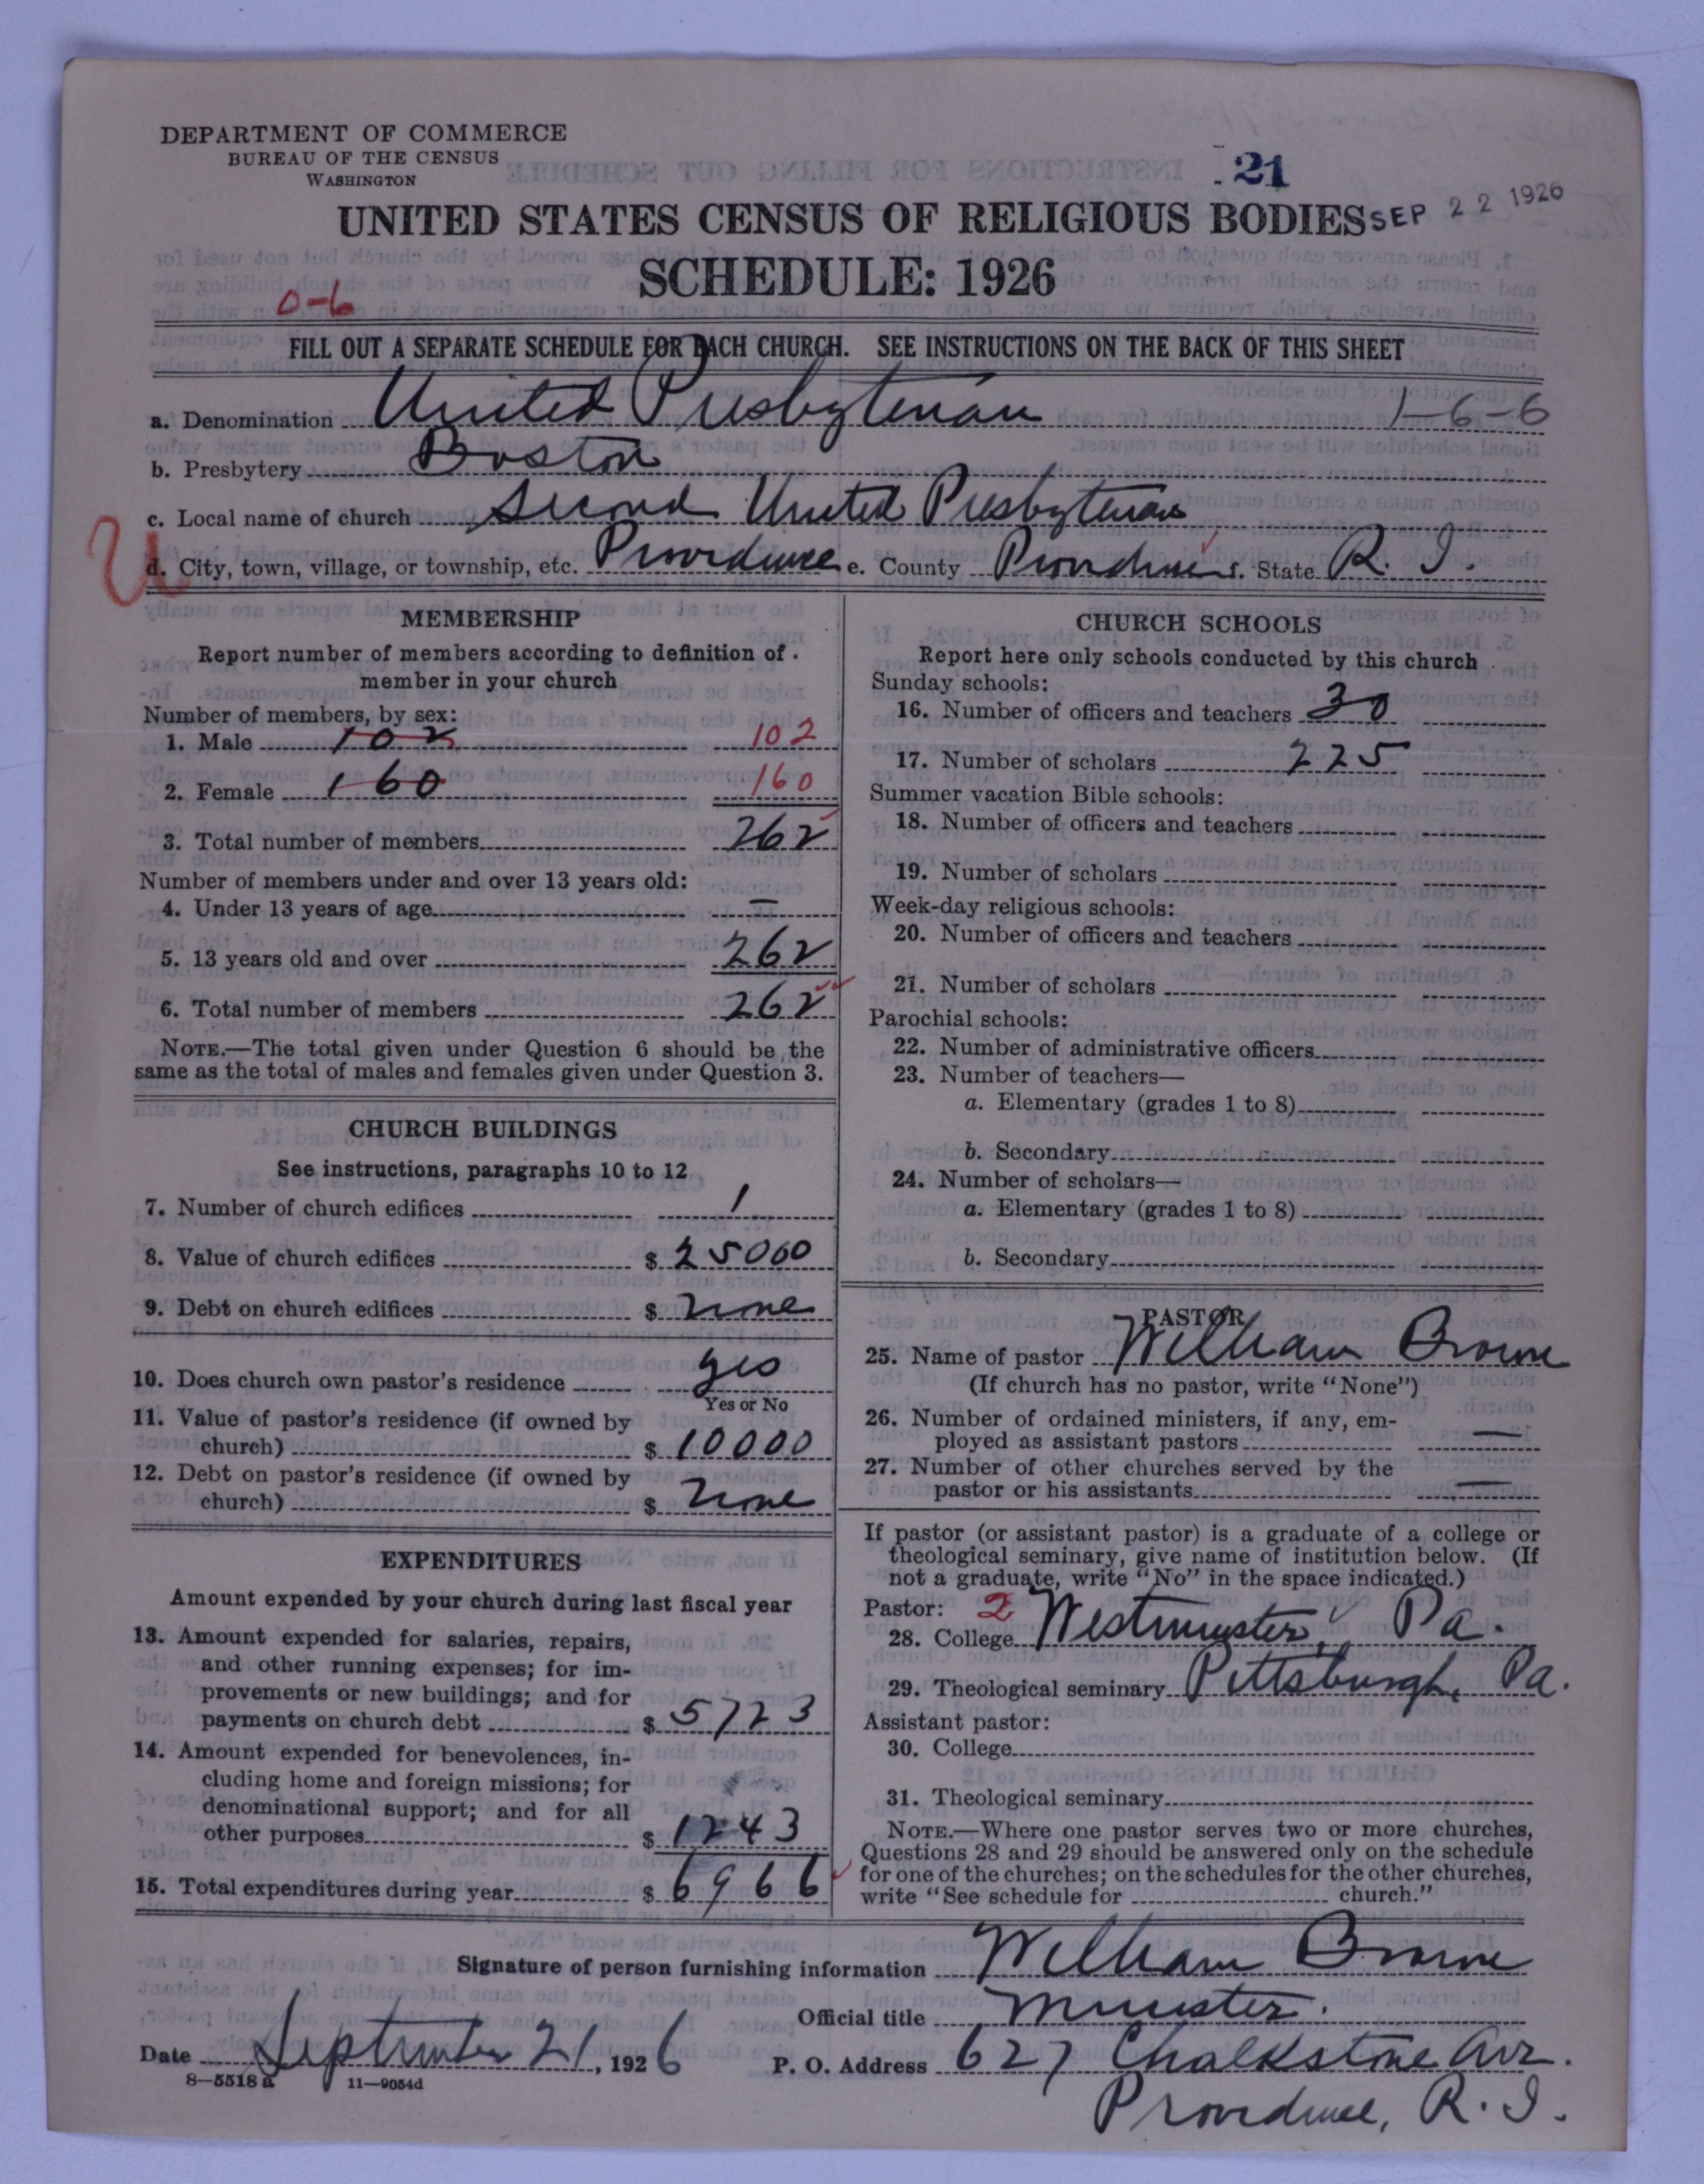 DEPARTMENT OF COMMERCE
BUREAU OF THE CENSUS
WASHINGTON
21
UNITED STATES CENSUS OF RELIGIOUS BODIES
SEP 22 1926
SCHEDULE: 1926
0-6
FILL OUT A SEPARATE SCHEDULE FOR EACH CHURCH. SEE INSTRUCTIONS ON THE BACK OF THIS SHEET
a. Denomination United Presbyterian 1-6-6
b. Presbytery Boston
c. Local name of church Second United Presbyterian
U
d. City, town, village, or township, etc. Providence e. County Providence f. State R. I.
MEMBERSHIP
Report number of members according to definition of member in your church
Number of members, by sex:
1. Male 102 102
2. Female 160 160
3. Total number of members 262
Number of members under and over 13 years old:
4. Under 13 years of age —
5. 13 years old and over 262
6. Total number of members 262
NOTE.—The total given under Question 6 should be the
same as the total of males and females given under Question 3.
CHURCH BUILDINGS
See instructions, paragraphs 10 to 12
7. Number of church edifices 1
8. Value of church edifices $ 25000
9. Debt on church edifices $ None
10. Does church own pastor's residence yes
Yes or No
11. Value of pastor's residence (if owned by
church) $ 10000
12. Debt on pastor's residence (if owned by
church) $ None
EXPENDITURES
Amount expended by your church during last fiscal year
13. Amount expended for salaries, repairs,
and other running expenses; for im-
provements or new buildings; and for
payments on church debt $ 5723
14. Amount expended for benevolences, in-
cluding home and foreign missions; for
denominational support; and for all
other purposes $ 1243
15. Total expenditures during year $ 6966
CHURCH SCHOOLS
Report here only schools conducted by this church
Sunday schools:
16. Number of officers and teachers 30
17. Number of scholars 225
Summer vacation Bible schools:
18. Number of officers and teachers
19. Number of scholars
Week-day religious schools:
20. Number of officers and teachers
21. Number of scholars
Parochial schools:
22. Number of administrative officers
23. Number of teachers—
a. Elementary (grades 1 to 8)
b. Secondary
24. Number of scholars—
a. Elementary (grades 1 to 8)
b. Secondary
PASTOR
25. Name of pastor William Brown
(If church has no pastor, write "None")
26. Number of ordained ministers, if any, em-
ployed as assistant pastors —
27. Number of other churches served by the
pastor or his assistants —
If pastor (or assistant pastor) is a graduate of a college or
theological seminary, give name of institution below. (If
not a graduate, write "No" in the space indicated.)
Pastor: 2
28. College Westminster, Pa.
29. Theological seminary Pittsburgh, Pa.
Assistant pastor:
30. College
31. Theological seminary
NOTE.—Where one pastor serves two or more churches,
Questions 28 and 29 should be answered only on the schedule
for one of the churches; on the schedules for the other churches,
write "See schedule for church."
Signature of person furnishing information William Brown
Official title Minister.
Date September 21, 1926 P. O. Address 627 Chalkstone Ave.
8—5518 a 11—9054d
Providence, R. I.